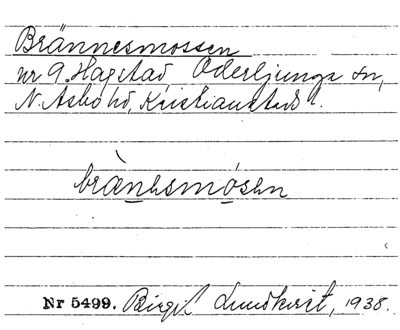 Brännesmossen
nr 9. Hagstad, Oderljunga sn,
N. Åsbo hd, Kristianstads l.
brànesmósen
Nr 5499. Birgit Lundkvist, 1938.